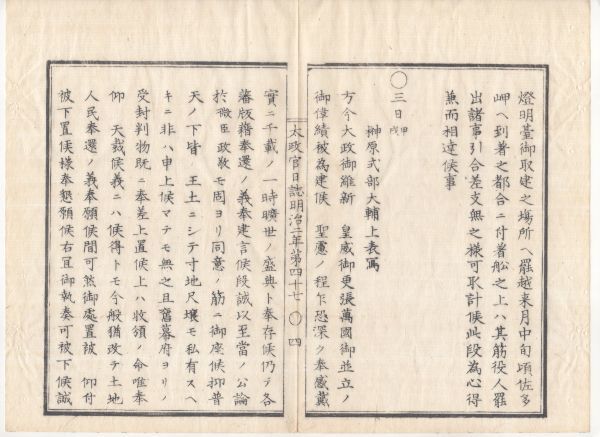 燈明臺御取建之場所ヘ罷越来月中旬頃佐多
岬ヘ到著之都合ニ付著舩之上ハ其筋役人罷
出諸事引合差支無之様可取計候此段為心得
兼而相達候事
〇三日 甲戌
榊原式部大輔上表寫
方今大政御維新 皇威御更張萬國御並立ノ
御偉績被為建候 聖慮ノ程乍恐深ク奉感戴
太政官日誌明治二年第四十七 〇 四
實ニ千載ノ一時曠世ノ盛典ト奉存候仍テ各
藩版籍奉還ノ義奉建言候段誠以至當ノ公論
於微臣政敬モ固ヨリ同意ノ筋ニ御座候抑普
天ノ下皆 王土ニシテ寸地尺壤モ私有スヘ
キニ非ハ申上候マテモ無之且舊幕府ヨリノ
受封判物既ニ奉差上置候上ハ收領ノ命唯奉
仰 天裁候義ニハ候得トモ今般猶改テ土地
人民奉還ノ義奉願候間可然御處置被 仰付
被下置候様奉懇願候右宜御執奏可被下候誠